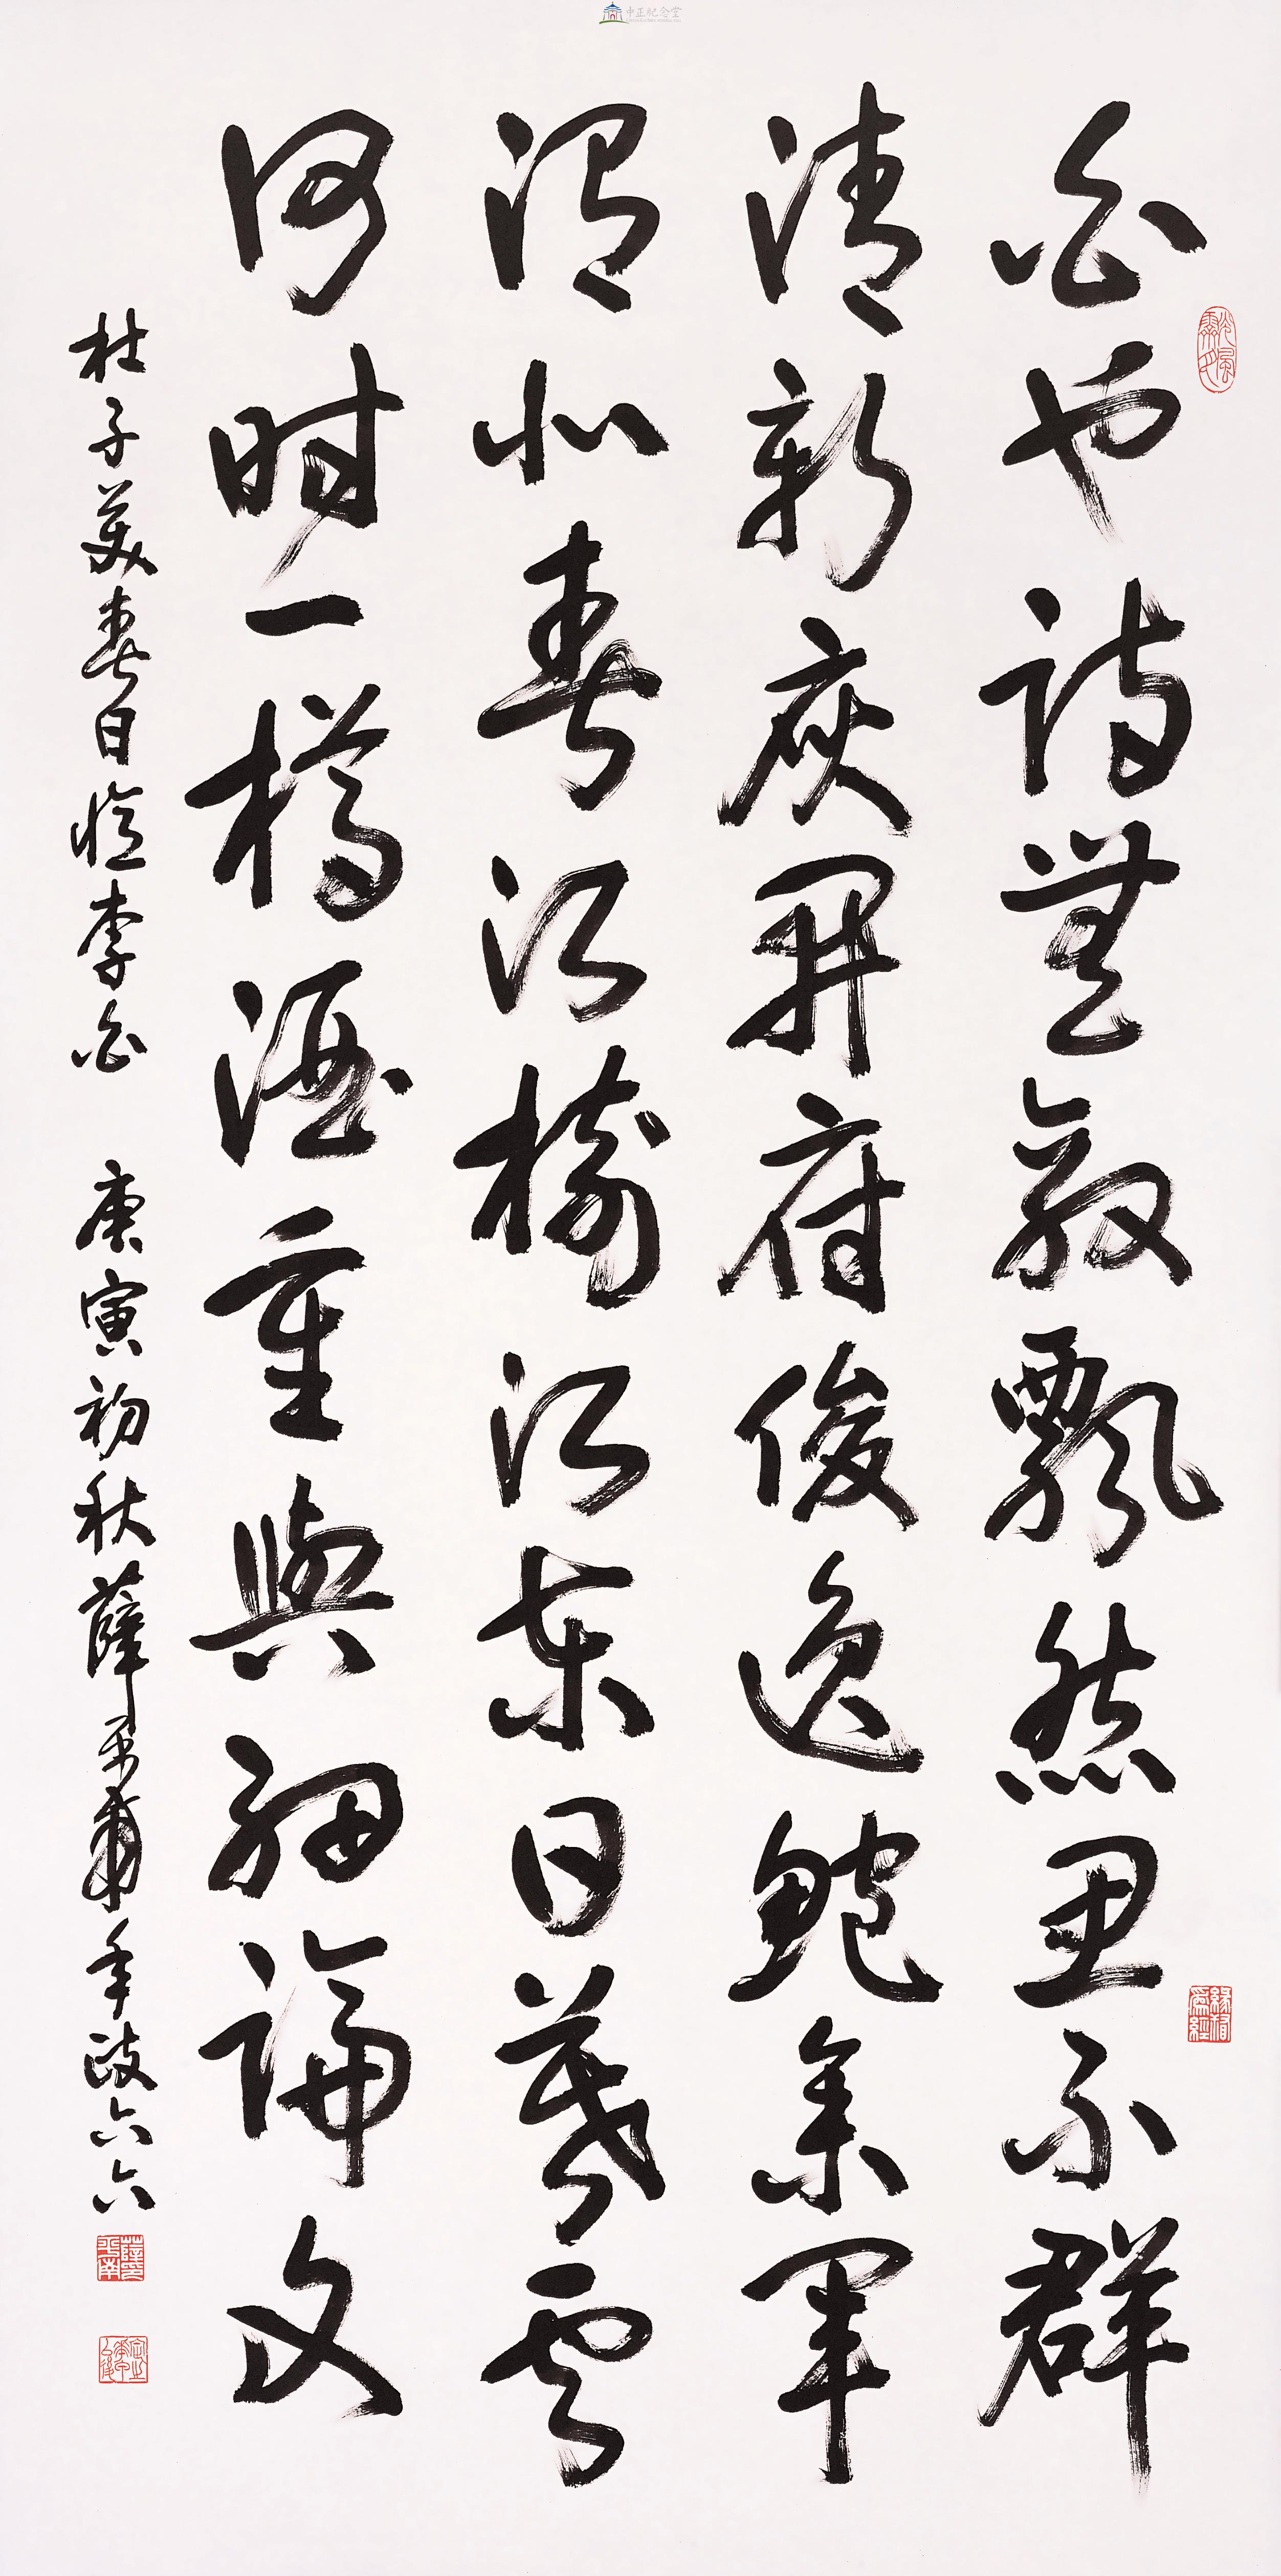 中正紀念堂
白也詩無敵飄然思不群
清新庾開府俊逸鮑參軍
渭北春江樹江東日暮雲
何時一樽酒重與細論文
杜子美春日憶李白 庚寅初秋薛平南年政六六
緣督為經
薛平南